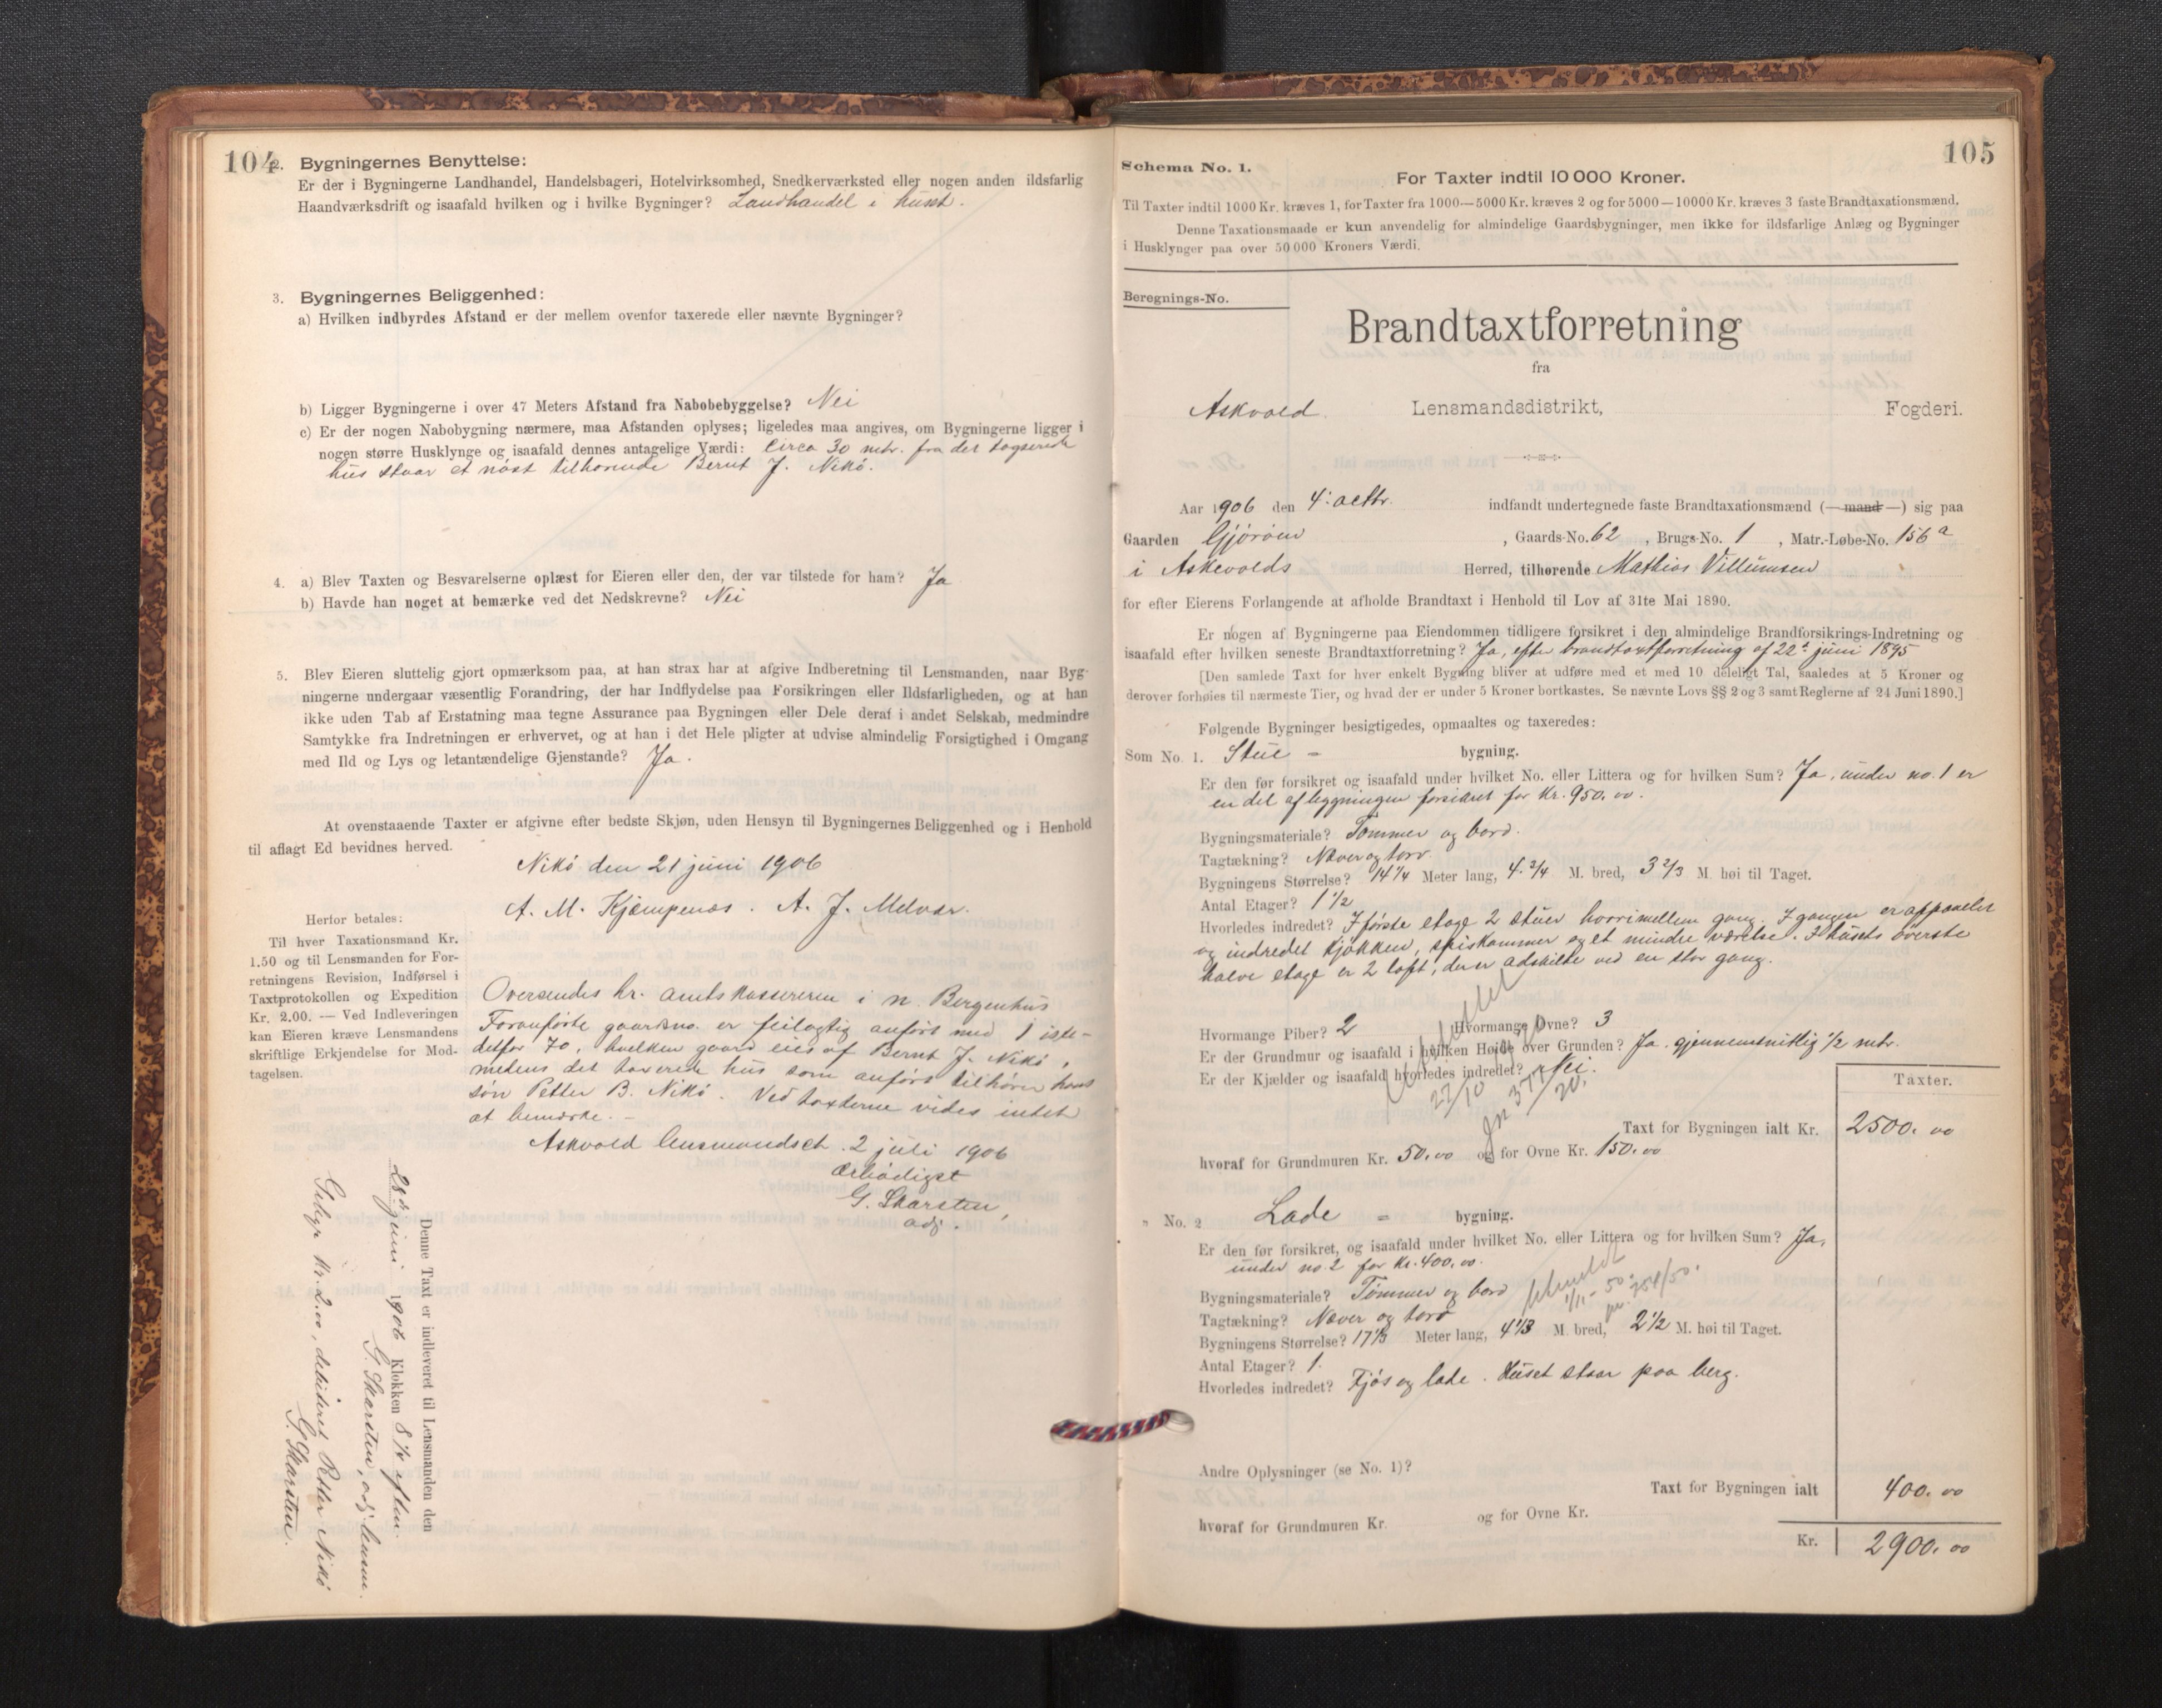 104
2. Bygningernes Benyttelse:
Er der i Bygningerne Landhandel, Handelsbageri, Hotelvirksomhed, Snedkerværksted eller nogen anden ildsfarlig
Haandværksdrift og isaafald hvilken og i hvilke Bygninger? Landhandel i huset.
3. Bygningernes Beliggenhed:
a) Hvilken indbyrdes Afstand er der mellem ovenfor taxerede eller nævnte Bygninger?
b) Ligger Bygningerne i over 47 Meters Afstand fra Nabobebyggelse? Nei
c) Er der nogen Nabobygning nærmere, maa Afstanden oplyses; ligeledes maa angives, om Bygningerne ligger i
nogen større Husklynge og isaafald dennes antagelige Værdi: Circa 30 mtr. fra det taxserede
hus staar et nöst tilhörende Bernt J. Nikö.
4. a) Blev Taxten og Besvarelserne oplæst for Eieren eller den, der var tilstede for ham? Ja
b) Havde han noget at bemærke ved det Nedskrevne? Nei
5. Blev Eieren sluttelig gjort opmærksom paa, at han strax har at afgive Indberetning til Lensmanden, naar Byg-
ningerne undergaar væsentlig Forandring, der har Indflydelse paa Forsikringen eller Ildsfarligheden, og at han
ikke uden Tab af Erstatning maa tegne Assurance paa Bygningen eller Dele deraf i andet Selskab, medmindre
Samtykke fra Indretningen er erhvervet, og at han i det Hele pligter at udvise almindelig Forsigtighed i Omgang
med Ild og Lys og letantændelige Gjenstande? Ja.
At ovenstaaende Taxter er afgivne efter bedste Skjøn, uden Hensyn til Bygningernes Beliggenhed og i Henhold
til aflagt Ed bevidnes herved.
Nikö den 21 juni 1906
A. M. Kjempenes. A. J. Melvær.
Herfor betales:
Til hver Taxationsmand Kr.
1.50 og til Lensmanden for For-
retningens Revision, Indførsel i
Taxtprotokollen og Expedition
Kr. 2.00. — Ved Indleveringen
kan Eieren kræve Lensmandens
skriftlige Erkjendelse for Mod-
tagelsen.
Oversendes hr. amtskassereren i n. Bergenhus
Foranförte gaardsno. er feilagtig anfört med 1 iste-
detfor 70, hvilken gaard eies af Bernt J. Nikö,
medens det taxerede hus som anfört tilhörer hans
sön Petter B. Nikö. Ved taxterne vides intet
at bemærke. -
Askvold lensmandset. 2 juli 1906
Ærbödigst
G. Skarsten,
adj.
Denne Taxt er indleveret til Lensmanden den
28de juni 1906 Klokken 8 1/2 efterm.
G. Skarsten, adj. lensm.
Gebyr kr. 2.00, debiteret Petter Nikö
G. Skarsten.
105
Schema No. 1.
For Taxter indtil 10 000 Kroner.
Til Taxter indtil 1000 Kr. kræves 1, for Taxter fra 1000—5000 Kr. kræves 2 og for 5000—10000 Kr. kræves 3 faste Brandtaxationsmænd.
Denne Taxationsmaade er kun anvendelig for almindelige Gaardsbygninger, men ikke for ildsfarlige Anlæg og Bygninger
i Husklynger paa over 50 000 Kroners Værdi.
Beregnings-No.
Brandtaxtforretning
fra
Askvold Lensmandsdistrikt, Fogderi.
Aar 1906 den 4. octbr. indfandt undertegnede faste Brandtaxationsmænd (—mand—) sig paa
Gaarden Gjöröen, Gaards-No. 62, Brugs-No. 1, Matr.-Løbe-No. 156 a
i Askevolds Herred, tilhørende Mathias Villumsen
for efter Eierens Forlangende at afholde Brandtaxt i Henhold til Lov af 31te Mai 1890.
Er nogen af Bygningerne paa Eiendommen tidligere forsikret i den almindelige Brandforsikrings-Indretning og
isaafald efter hvilken seneste Brandtaxtforretning? Ja, efter brandtaxtforretning af 22. juni 1895
[Den samlede Taxt for hver enkelt Bygning bliver at udføre med et med 10 deleligt Tal, saaledes at 5 Kroner og
derover forhøies til nærmeste Tier, og hvad der er under 5 Kroner bortkastes. Se nævnte Lovs §§ 2 og 3 samt Reglerne af 24 Juni 1890.]
Følgende Bygninger besigtigedes, opmaaltes og taxeredes:
Som No. 1. Stue = bygning.
Er den før forsikret og isaafald under hvilket No. eller Littera og for hvilken Sum? Ja, under no. 1 er
en del af bygningen forsikret for kr. 950.00.
Bygningsmateriale? Tömmer og bord.
Tagtækning? Næver og torv
Bygningens Størrelse? 14 1/4 Meter lang, 4 3/4 M. bred, 3 2/3 M. høi til Taget.
Antal Etager? 1 1/2
Hvorledes indredet? I förste etage 2 stuer hvorimellem gang. I gangen er afpanelet
og indredet kjökken, spiskammer og et mindre værelse. I husets överste
halve etage er 2 loft, der er adskilte ved en stor gang.
Hvormange Piber? 2 Hvormange Ovne? 3
Er der Grundmur og isaafald i hvilken Høide over Grunden? Ja. gjennemsnitlig 1/2 mtr.
Er der Kjælder og isaafald hvorledes indredet? Nei.
27/10
Taxter.
Taxt for Bygningen ialt Kr. 2500.00
hvoraf for Grundmuren Kr. 50.00 og for Ovne Kr. 150.00
" No. 2 Lade = bygning.
Er den før forsikret, og isaafald under hvilket No. eller Littera og for hvilken Sum? Ja,
under no. 2 for kr. 400.00.
Bygningsmateriale? Tömmer og bord
Tagtækning? Næver og torv
1/11 - 50. jn. 254/50.
Bygningens Størrelse? 17 1/3 Meter lang, 4 1/3 M. bred, 2 1/2 M. høi til Taget.
Antal Etager? 1.
Hvorledes indredet? Fjös og lade. Huset staar paa berg.
Andre Oplysninger (se No. 1)?
Taxt for Bygningen ialt 400.00
hvoraf for Grundmuren Kr. og for Ovne Kr.
Kr. 2900.00